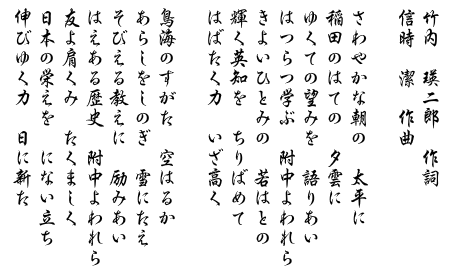 竹内 瑛二郎 作詞
信時 潔 作曲
さわやかな朝の 太平に
稲田のはての 夕雲に
ゆくての望みを 語りあい
はつらつ学ぶ 附中よわれら
きよいひとみの 若はとの
輝く英知を ちりばめて
はばたく力 いざ高く
鳥海のすがた 空はるか
あらしをしのぎ 雪にたえ
そびえる教えに 励みあい
はえある歴史 附中よわれら
友よ肩くみ たくましく
日本の栄えを にない立ち
伸びゆく力 日に新た